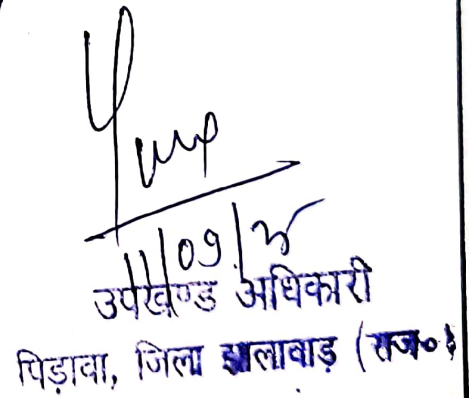 11/09/25
उपखण्ड अधिकारी
पिड़ावा, जिला झालावाड़ (राज०)